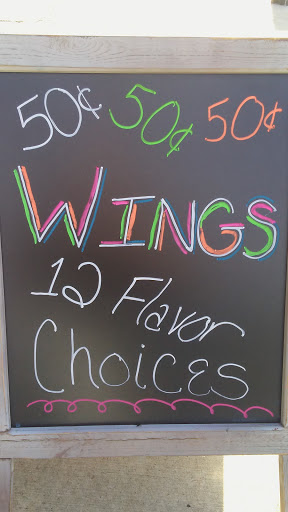 50¢ 50¢ 50¢
WINGS
12 Flavor
Choices